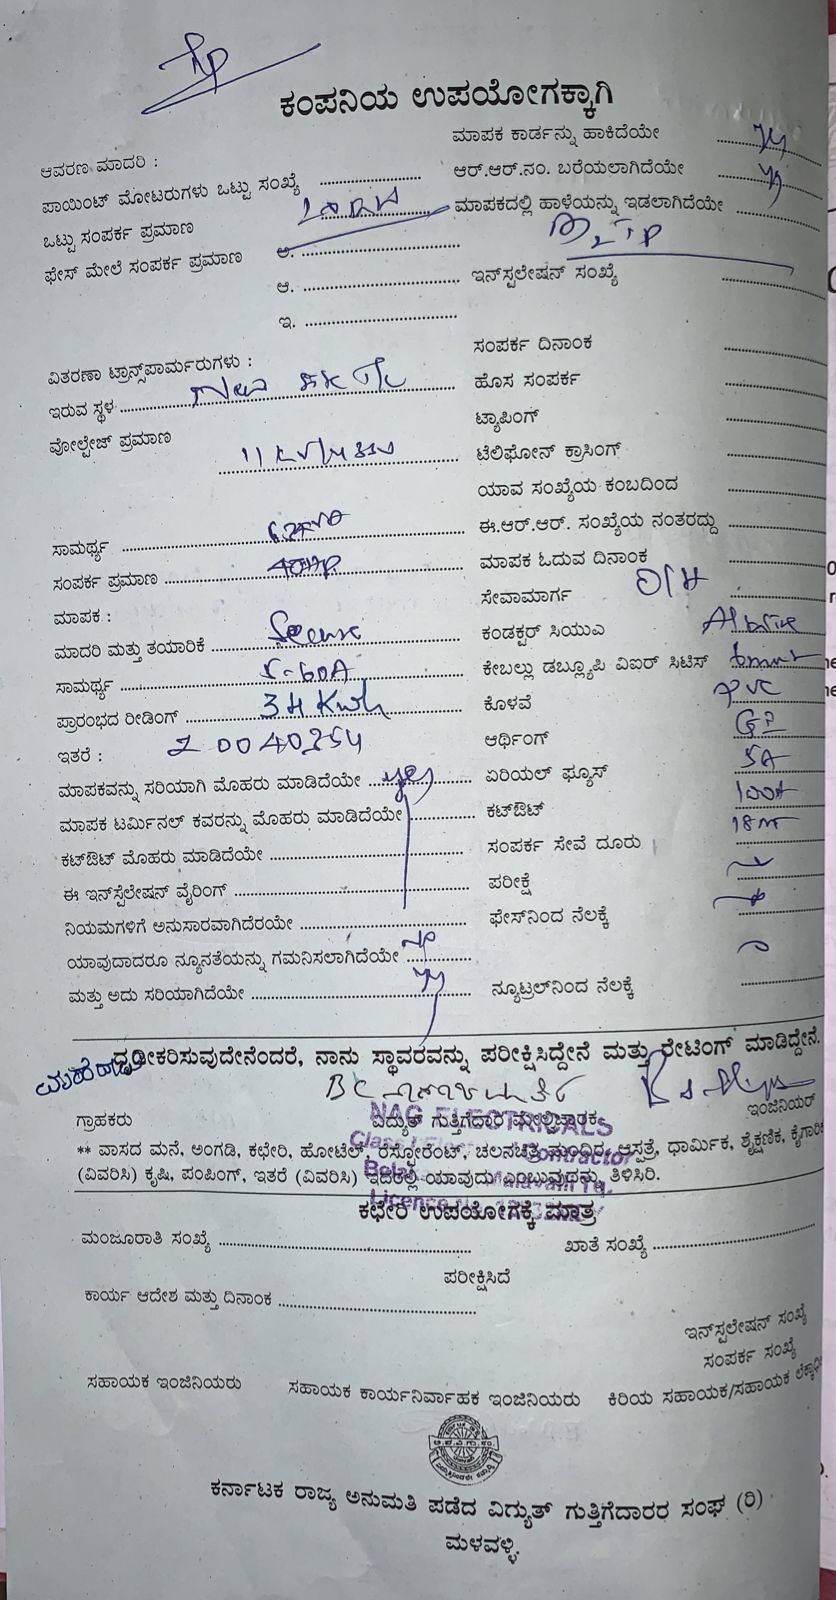 ಕಂಪನಿಯ ಉಪಯೋಗಕ್ಕಾಗಿ
ಆವರಣ ಮಾದರಿ :
ಪಾಯಿಂಟ್ ಮೋಟರುಗಳು ಒಟ್ಟು ಸಂಖ್ಯೆ
ಒಟ್ಟು ಸಂಪರ್ಕ ಪ್ರಮಾಣ
ಫೇಸ್ ಮೇಲೆ ಸಂಪರ್ಕ ಪ್ರಮಾಣ ಅ.
ಆ.
ಇ.
ವಿತರಣಾ ಟ್ರಾನ್ಸ್‌ಪಾರ್ಮರುಗಳು :
ಇರುವ ಸ್ಥಳ New
ವೋಲ್ಟೇಜ್ ಪ್ರಮಾಣ
ಸಾಮರ್ಥ್ಯ
ಸಂಪರ್ಕ ಪ್ರಮಾಣ 40HP
ಮಾಪಕ :
ಮಾದರಿ ಮತ್ತು ತಯಾರಿಕೆ Secure
ಸಾಮರ್ಥ್ಯ 5-60A
ಪ್ರಾರಂಭದ ರೀಡಿಂಗ್ 34 Kwh
ಇತರೆ :
ಮಾಪಕವನ್ನು ಸರಿಯಾಗಿ ಮೊಹರು ಮಾಡಿದೆಯೇ yes
ಮಾಪಕ ಟರ್ಮಿನಲ್ ಕವರನ್ನು ಮೊಹರು ಮಾಡಿದೆಯೇ
ಕಟ್‌ಔಟ್ ಮೊಹರು ಮಾಡಿದೆಯೇ
ಈ ಇನ್‌ಸ್ಪೆಲೇಷನ್ ವೈರಿಂಗ್
ನಿಯಮಗಳಿಗೆ ಅನುಸಾರವಾಗಿದೆರಯೇ
ಯಾವುದಾದರೂ ನ್ಯೂನತೆಯನ್ನು ಗಮನಿಸಲಾಗಿದೆಯೇ
ಮತ್ತು ಅದು ಸರಿಯಾಗಿದೆಯೇ
ಮಾಪಕ ಕಾರ್ಡನ್ನು ಹಾಕಿದೆಯೇ
ಆರ್.ಆರ್.ನಂ. ಬರೆಯಲಾಗಿದೆಯೇ
ಮಾಪಕದಲ್ಲಿ ಹಾಳೆಯನ್ನು ಇಡಲಾಗಿದೆಯೇ
ಇನ್‌ಸ್ಪಲೇಷನ್ ಸಂಖ್ಯೆ
ಸಂಪರ್ಕ ದಿನಾಂಕ
ಹೊಸ ಸಂಪರ್ಕ
ಟ್ಯಾಪಿಂಗ್
ಟೆಲಿಫೋನ್ ಕ್ರಾಸಿಂಗ್
ಯಾವ ಸಂಖ್ಯೆಯ ಕಂಬದಿಂದ
ಈ.ಆರ್.ಆರ್. ಸಂಖ್ಯೆಯ ನಂತರದ್ದು
ಮಾಪಕ ಓದುವ ದಿನಾಂಕ
ಸೇವಾಮಾರ್ಗ O/H
ಕಂಡಕ್ಟರ್ ಸಿಯುಎ
ಕೇಬಲ್ಲು ಡಬ್ಲ್ಯೂಪಿ ವಿಐರ್ ಸಿಟಿಸ್
ಕೊಳವೆ PVC
ಆರ್ಥಿಂಗ್ GI
ಏರಿಯಲ್ ಫ್ಯೂಸ್ 5A
ಕಟ್‌ಔಟ್ 100A
ಸಂಪರ್ಕ ಸೇವೆ ದೂರು
ಪರೀಕ್ಷೆ
ಫೇಸ್‌ನಿಂದ ನೆಲಕ್ಕೆ
ನ್ಯೂಟ್ರಲ್‌ನಿಂದ ನೆಲಕ್ಕೆ
ಧೃಡೀಕರಿಸುವುದೇನೆಂದರೆ, ನಾನು ಸ್ಥಾವರವನ್ನು ಪರೀಕ್ಷಿಸಿದ್ದೇನೆ ಮತ್ತು ರೇಟಿಂಗ್ ಮಾಡಿದ್ದೇನೆ.
ಗ್ರಾಹಕರು ವಿದ್ಯುತ್ ಗುತ್ತಿಗೆದಾರ ಮೇಲ್ವಿಚಾರಕ ಇಂಜಿನಿಯರ್
NAG ELECTRICALS
** ವಾಸದ ಮನೆ, ಅಂಗಡಿ, ಕಛೇರಿ, ಹೋಟೆಲ್, ರೆಸ್ಟೋರೆಂಟ್, ಚಲನಚಿತ್ರ ಮಂದಿರ, ಆಸ್ಪತ್ರೆ, ಧಾರ್ಮಿಕ, ಶೈಕ್ಷಣಿಕ,
(ವಿವರಿಸಿ) ಕೃಷಿ, ಪಂಪಿಂಗ್, ಇತರೆ (ವಿವರಿಸಿ) ಇದರಲ್ಲಿ ಯಾವುದು ಎಂಬುವುದನ್ನು ತಿಳಿಸಿರಿ.
ಕಛೇರಿ ಉಪಯೋಗಕ್ಕೆ ಮಾತ್ರ
ಮಂಜೂರಾತಿ ಸಂಖ್ಯೆ ಖಾತೆ ಸಂಖ್ಯೆ
ಪರೀಕ್ಷಿಸಿದೆ
ಕಾರ್ಯ ಆದೇಶ ಮತ್ತು ದಿನಾಂಕ
ಇನ್‌ಸ್ಪಲೇಷನ್ ಸಂಖ್ಯೆ
ಸಂಪರ್ಕ ಸಂಖ್ಯೆ
ಸಹಾಯಕ ಇಂಜಿನಿಯರು ಸಹಾಯಕ ಕಾರ್ಯನಿರ್ವಾಹಕ ಇಂಜಿನಿಯರು ಕಿರಿಯ ಸಹಾಯಕ/ಸಹಾಯಕ
ಕರ್ನಾಟಕ ರಾಜ್ಯ ಅನುಮತಿ ಪಡೆದ ವಿದ್ಯುತ್ ಗುತ್ತಿಗೆದಾರರ ಸಂಘ (ರಿ)
ಮಳವಳ್ಳಿ.